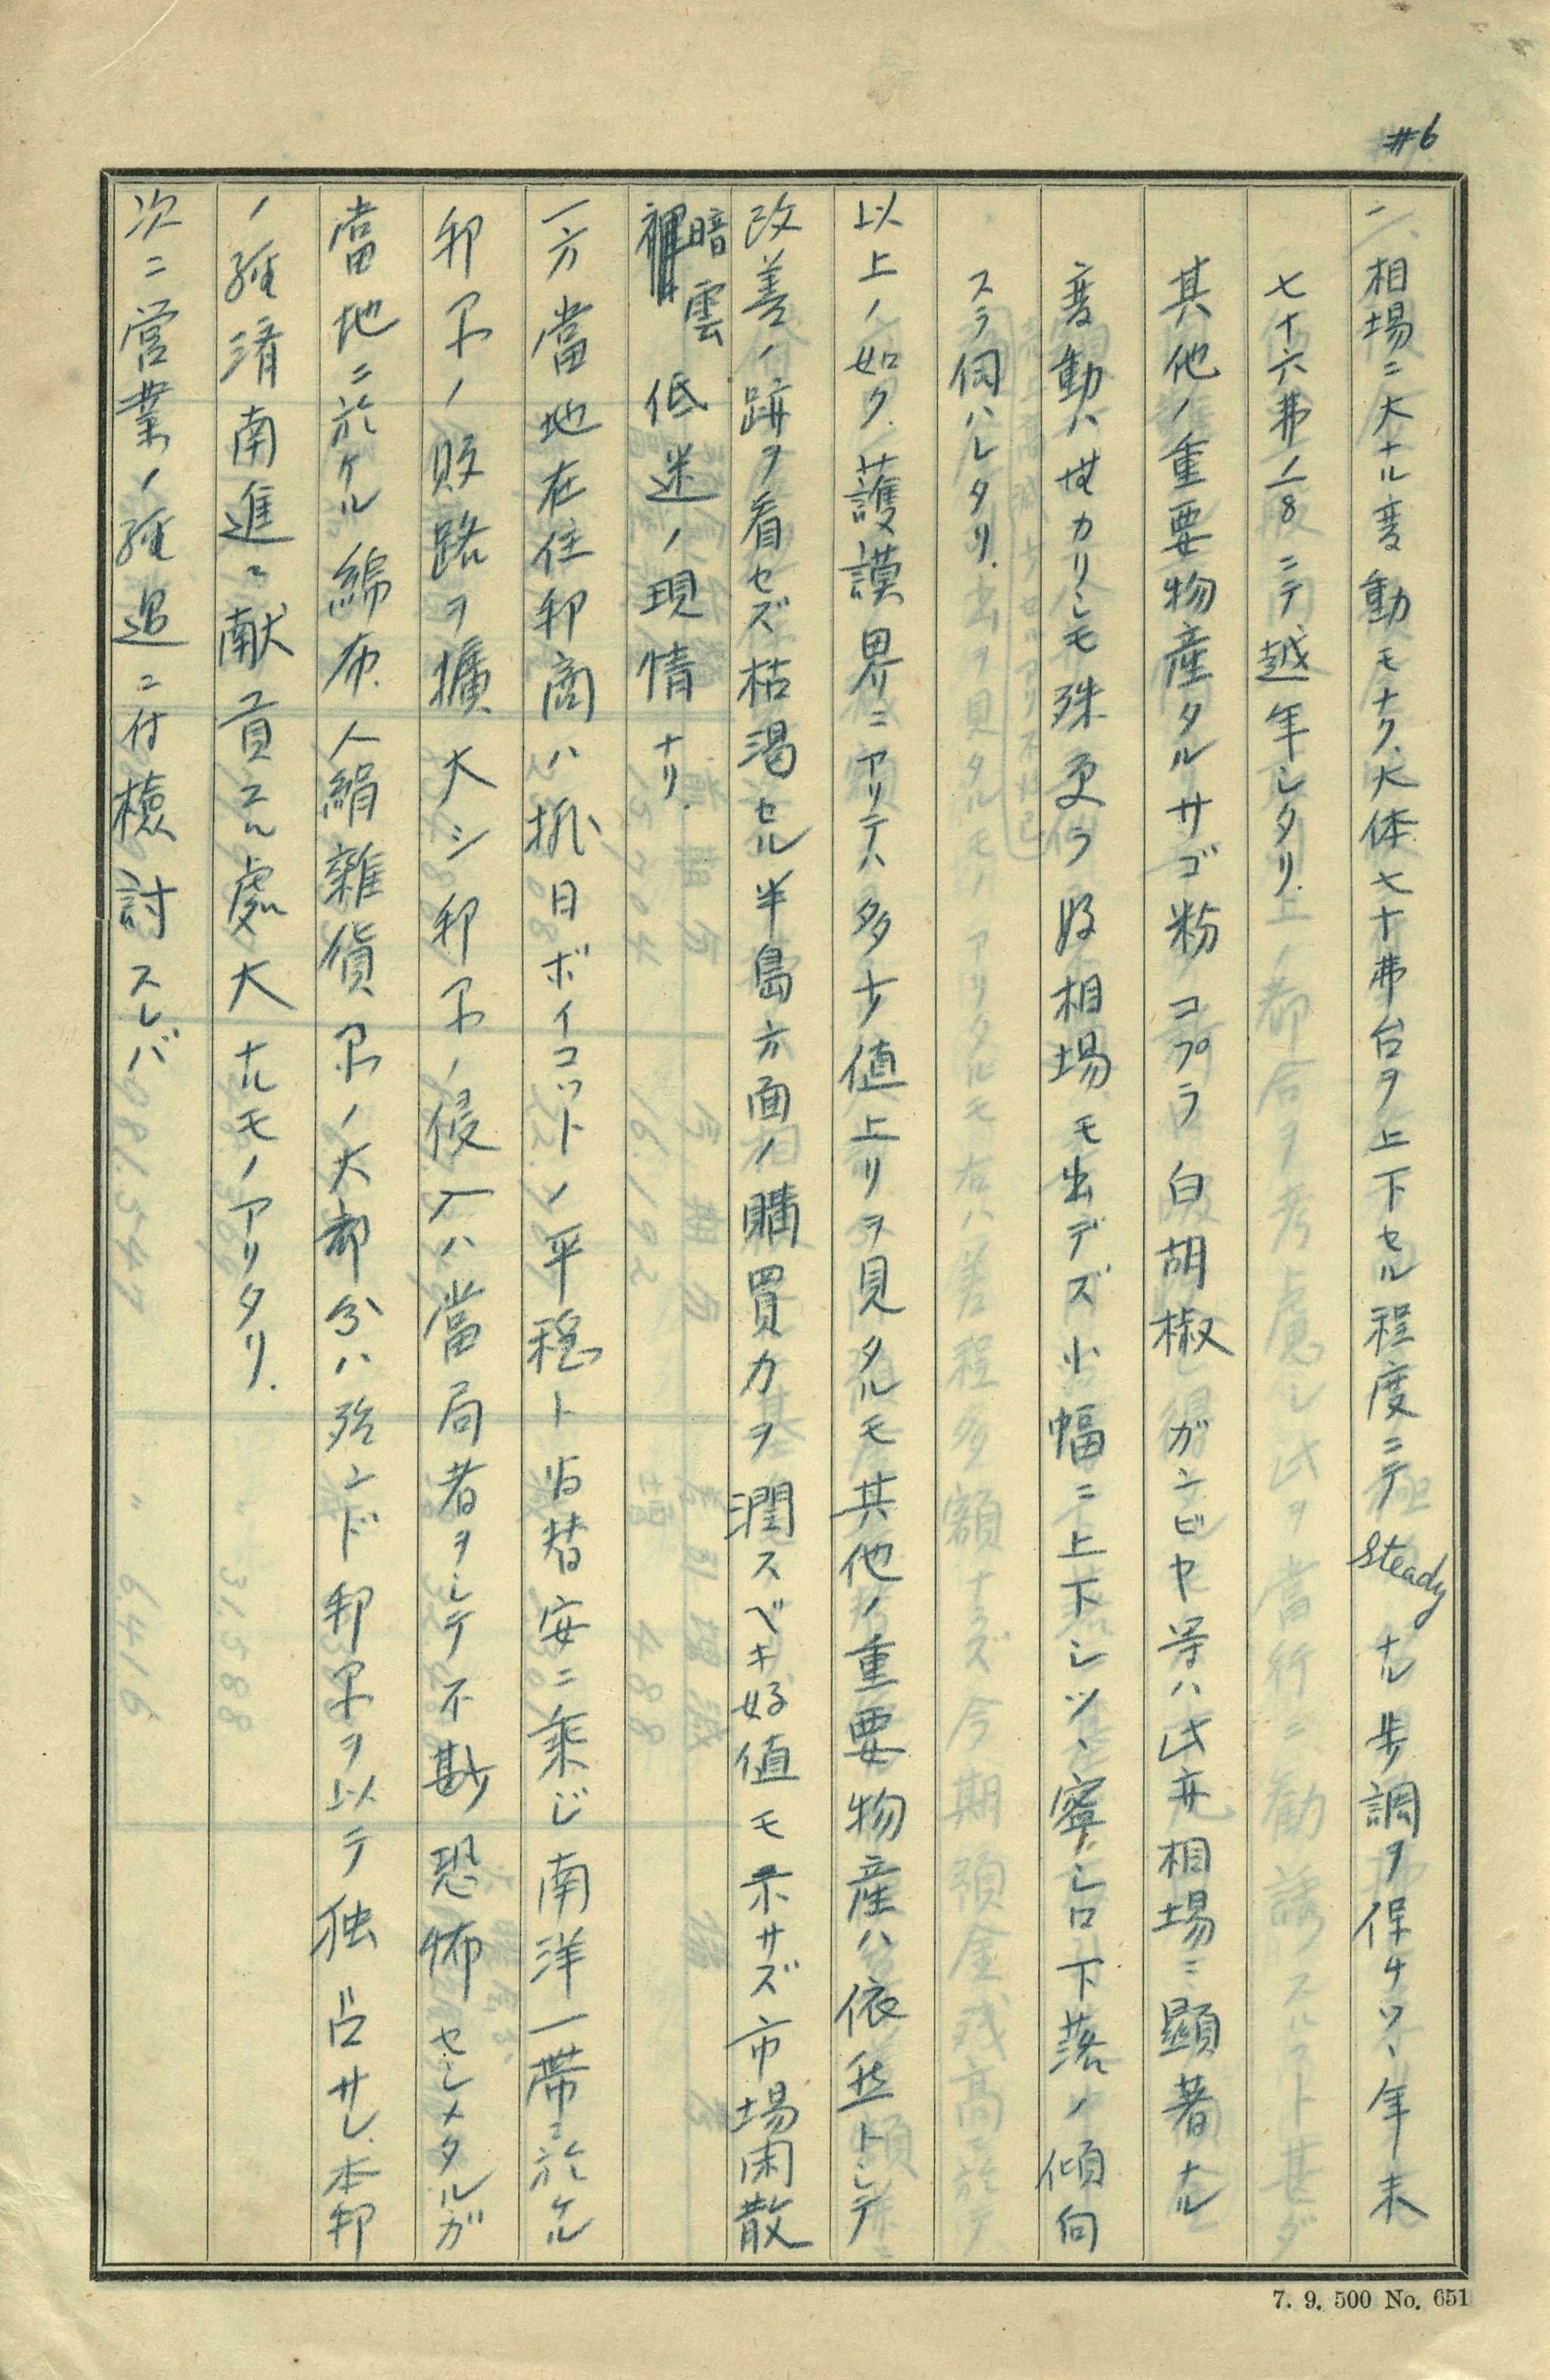 #6
ニ、相場ニ大ナル変動モナク、大体七十弗台ヲ上下セル程度ニテ steady ナル歩調ヲ保チツヽ年末
七十六弗1/8ニテ越年シタリ.
其他ノ重要物産タルサゴ粉 コプラ 白胡椒 ガンビヤ等ハ此亦相場ニ顕著ナル
変動ハ無カリシモ殊更ラ好相場モ出デズ小幅ニ上下シツヽ寧ロ下落ノ傾向
スラ伺ハレタリ.
以上ノ如ク護謨界ニアリテハ多少値上リヲ見タルモ其他ノ重要物産ハ依然トシテ
改善ノ跡ヲ看セズ枯渇セル半島方面ノ購買力ヲ潤スベキ好値モ示サズ市場閑散
暗雲低迷ノ現情ナリ.
一方當地在住邦商ハ排日ボイコットノ平穏ト為替安ニ乗じ南洋一帯ニ於ケル
邦品ノ販路ヲ擴大シ邦品ノ侵入ハ當局者ヲシテ不尠恐怖セシメタルガ
當地ニ於ケル綿布.人絹雜貨品ノ大部分ハ殆ンド邦品ヲ以テ独占サレ本邦
ノ経済南進ニ献貢スル處大ナルモノアリタリ.
次ニ営業ノ経過ニ付檢討スレバ
7. 9. 500 No. 651